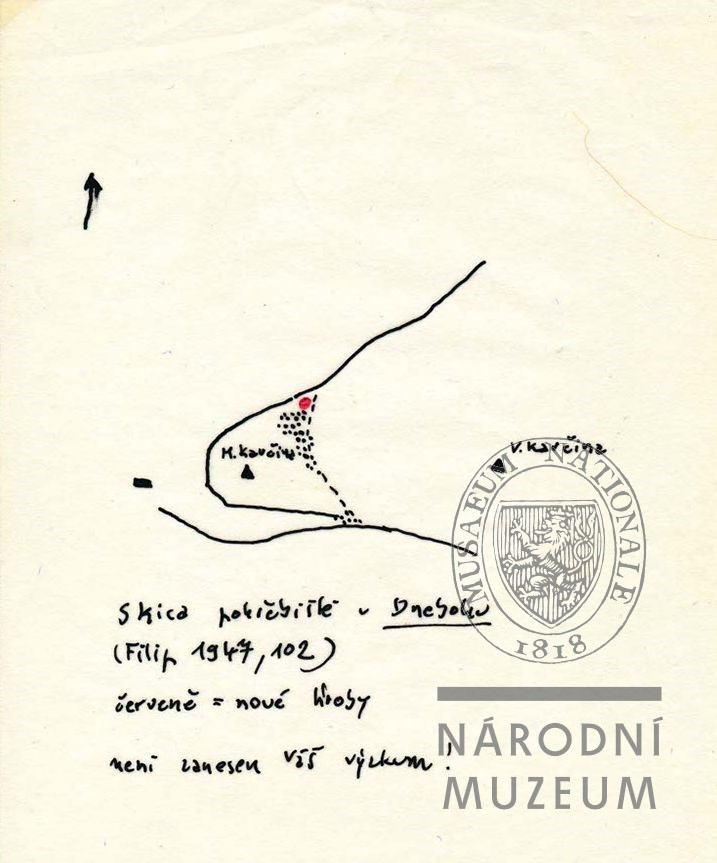 M. Kavčina
V. Kavčina
Skica pohřebiště v Dnebohu
(Filip 1947, 102)
červeně = nové hroby
není zanesen Váš výzkum!
MUSAEUM NATIONALE
1818
NÁRODNÍ
MUZEUM